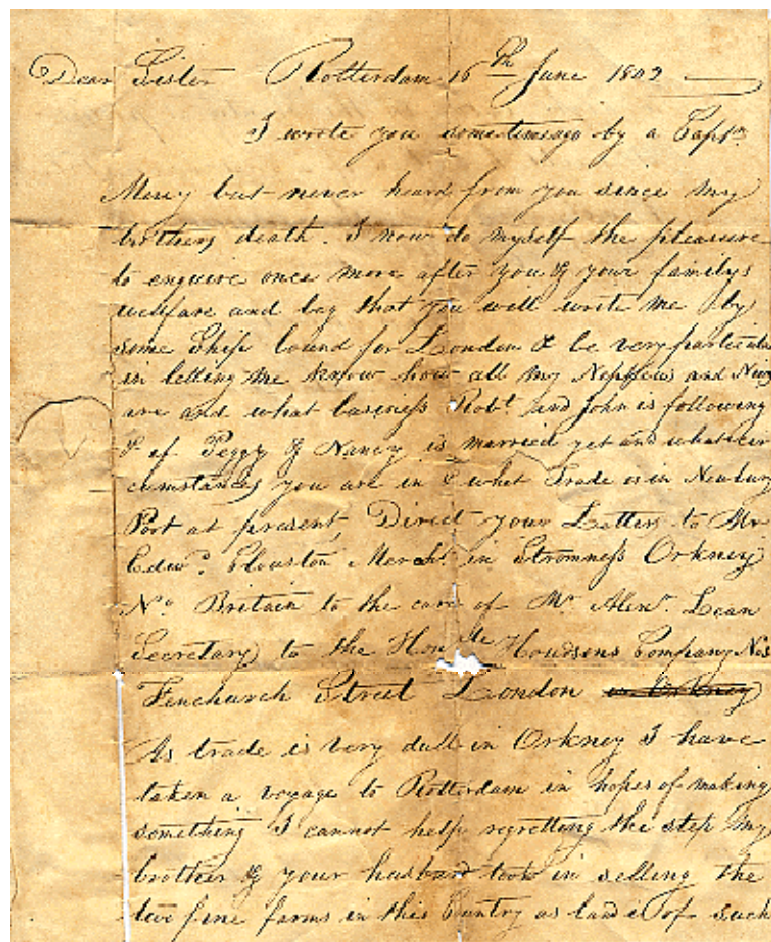 Dear Sister Rotterdam 16th June 1802
I wrote you sometimeago by a Captn.
Mercy but never heard from you since my
brothers death. I now do myself the pleasure
to enquire once more after you & your familys
welfare and beg that you will write me by
some Ship bound for London & be very particular
in letting me know how all my Nephews and
are and what business Robt. and John is following
& if Peggy & Nancy is married yet and what cir
cumstances you are in & what Trade is in Newbury
Port at present, Direct your Letters to Mr
Edwd. Clouston Mercht. in Stromness Orkney
No. Britain to the care of Mr. Alexr. Lean
Secretary to the Honble Howdsons Company No3
Fenchurch Street London in Orkney
As trade is very dull in Orkney I have
taken a voyage to Rotterdam in hopes of making
something I cannot help regretting the step my
brother & your husband took in selling the
two fine farms in this Cuntry as land is of such